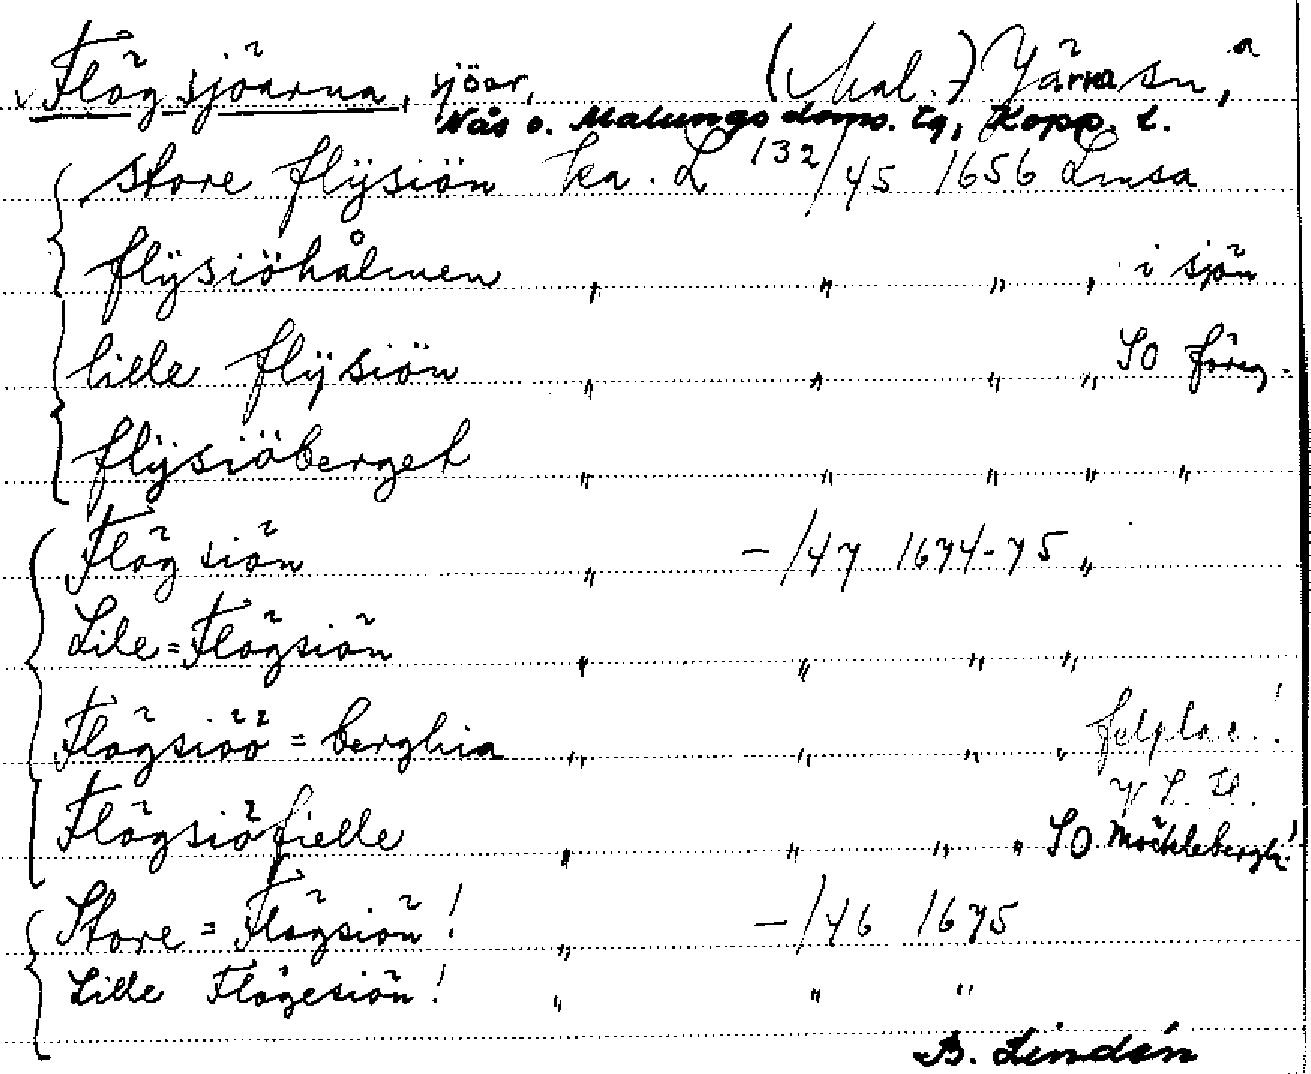 Flögsjöarna, sjöar, (Mal.) Järna sn,
Nås o. Malungs doms. tg, Kopp. l.
store flÿsiön ka. L 132/45 1656 Limsa
flÿsiöhålmen " " " " i sjön
lille flÿsiön " " " " SO föreg.
flÿsiöberget " " " " "
Flögsiön " -/47 1674-75 "
Lile=Flögsiön " " " "
Flögsiöö=berghia " " " " felplac.!
Flögsiöfielle " " " " SO Möcklebergh!
Store=Flögsiön! " -/46 1675
Lille Flögesiön! " " "
B. Lindén